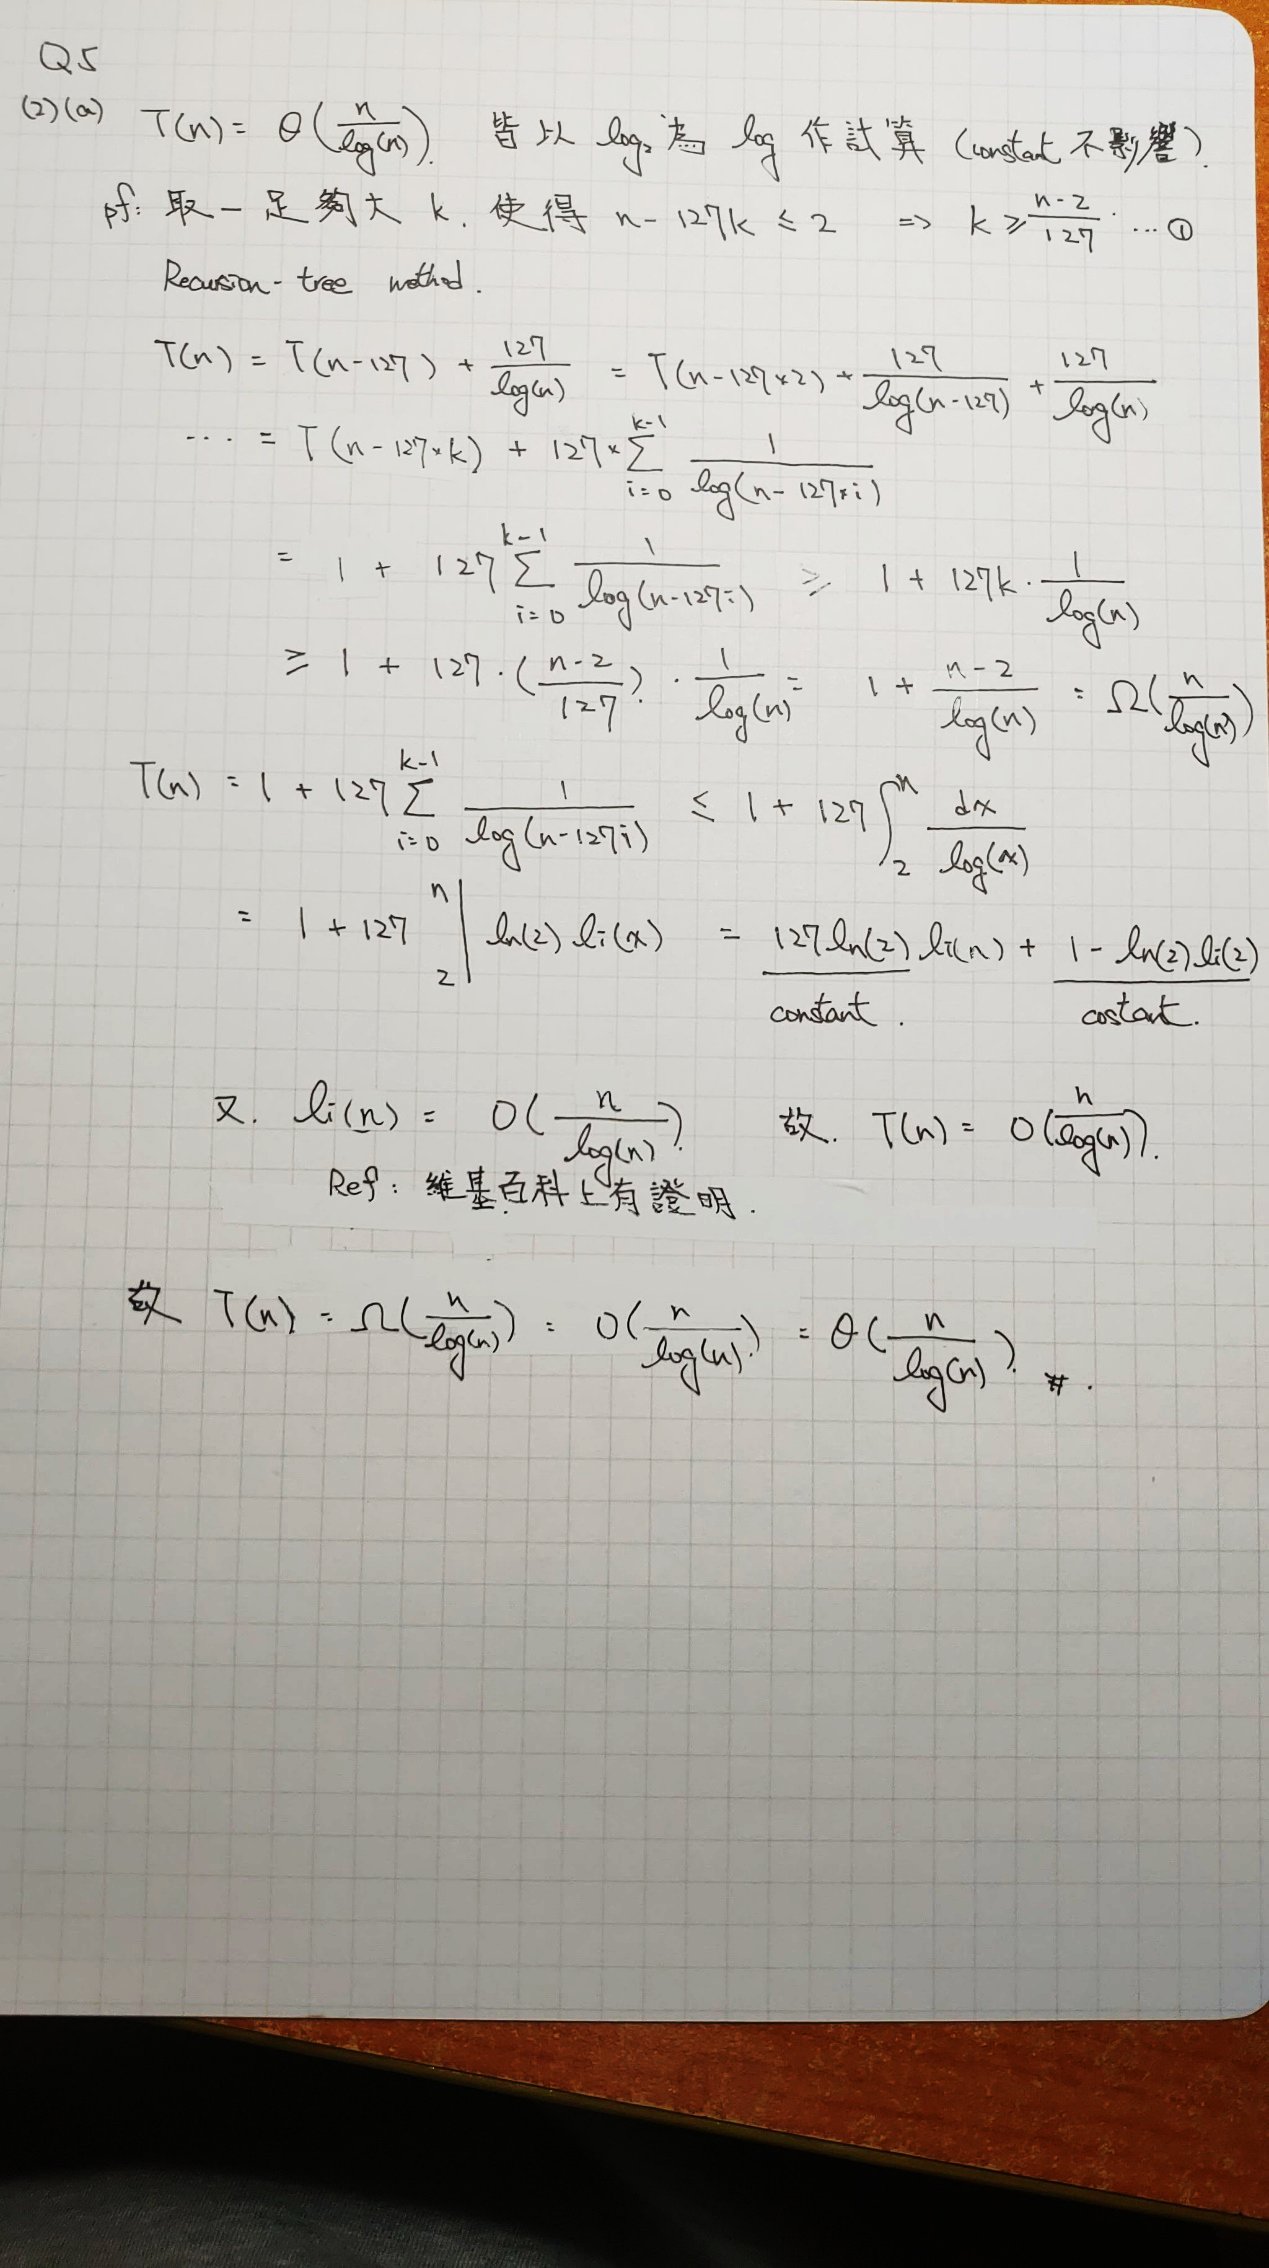 Q5
(2)(a) T(n) = θ(n/log(n)). 皆以 log₂ 為 log 作試算 (constant 不影響).
pf: 取一足夠大 k. 使得 n - 127k ≤ 2 => k ≥ (n-2)/127 ... ①
Recursion-tree method.
T(n) = T(n-127) + 127/log(n) = T(n-127*2) + 127/log(n-127) + 127/log(n)
... = T(n-127*k) + 127 * Σ_{i=0}^{k-1} 1/log(n-127*i)
= 1 + 127 Σ_{i=0}^{k-1} 1/log(n-127i) ≥ 1 + 127k · 1/log(n)
≥ 1 + 127 · ((n-2)/127) · 1/log(n) = 1 + (n-2)/log(n) = Ω(n/log(n))
T(n) = 1 + 127 Σ_{i=0}^{k-1} 1/log(n-127i) ≤ 1 + 127 ∫_2^n dx/log(x)
= 1 + 127 _2^n| ln(2) li(x) = 127 ln(2) li(n) + 1 - ln(2) li(2)
constant. costant.
又. li(n) = O(n/log(n)). 故. T(n) = O(n/log(n)).
Ref: 維基百科上有證明.
故 T(n) = Ω(n/log(n)) = O(n/log(n)) = θ(n/log(n)). #.